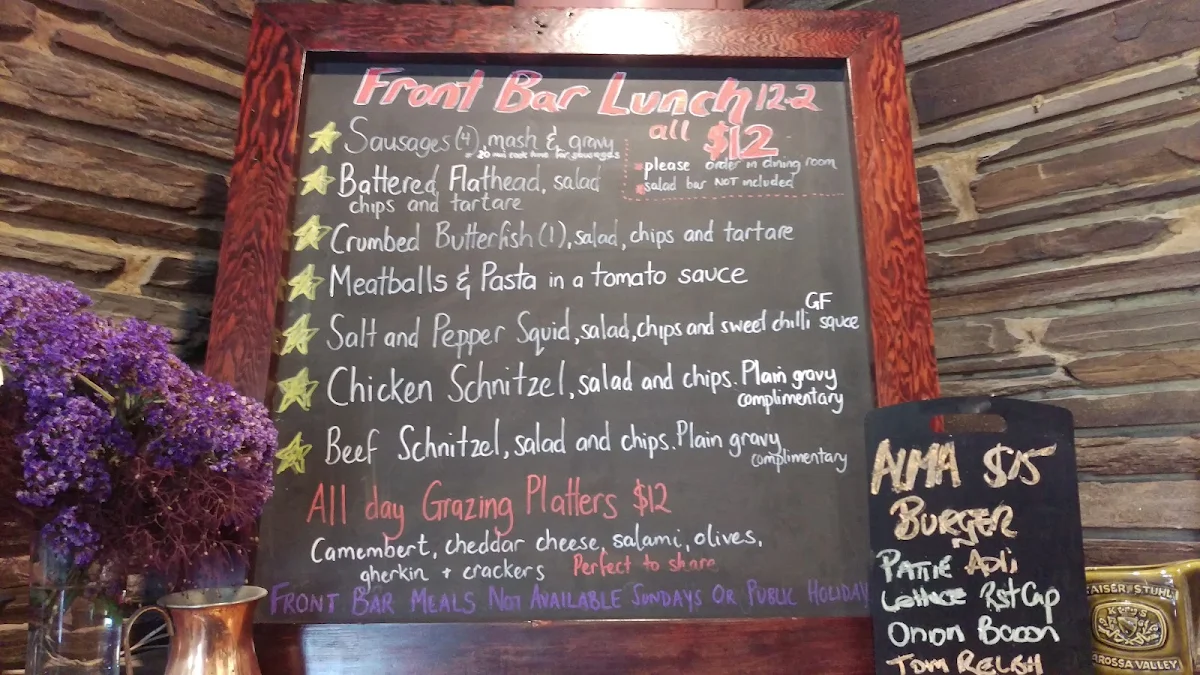 Front Bar Lunch 12-2
all $12
Sausages (4), mash & gravy
20 min cook time for sausages
please order in dining room
salad bar NOT included
Battered Flathead, salad
chips and tartare
Crumbed Butterfish (1), salad, chips and tartare
Meatballs & Pasta in a tomato sauce
GF
Salt and Pepper Squid, salad, chips and sweet chilli sauce
Chicken Schnitzel, salad and chips. Plain gravy
complimentary
Beef Schnitzel, salad and chips. Plain gravy
complimentary
All day Grazing Platters $12
Camembert, cheddar cheese, salami, olives,
gherkin + crackers Perfect to share
FRONT BAR MEALS NOT AVAILABLE SUNDAYS OR PUBLIC HOLIDAY
ALMA $15
BURGER
PATTIE
Lettuce Rst Cap
Onion Bacon
TOM RELISH
KAISER STUHL
BAROSSA VALLEY